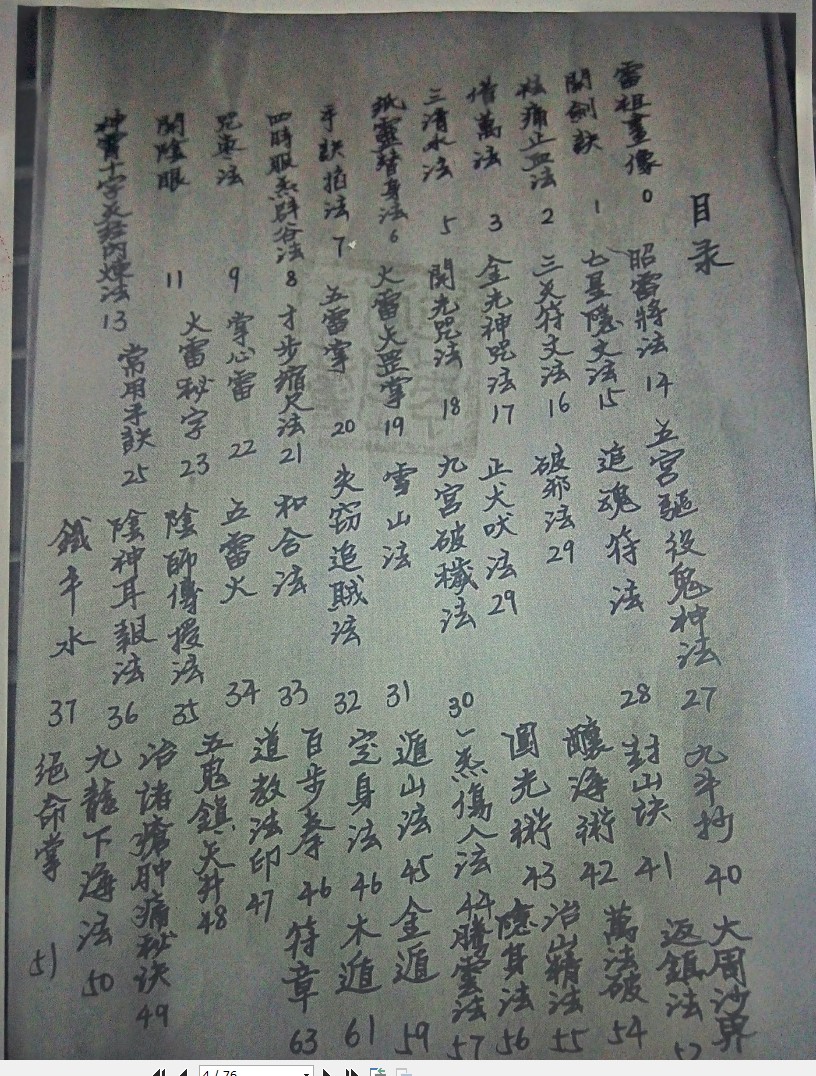 目录
雷祖畫像 0
開劍訣 1
祛痛止血法 2
借萬法 3
三清水法 5
紙靈替身法 6
手訣掐法 7
四時服炁辟谷法 8
咒棗法 9
開陰眼 11
神霄十字天经内煉法 13
昭雷將法 14
七星隱文法 15
三天符文法 16
金光神咒法 17
開光咒法 18
火雷天罡掌 19
五雷掌 20
才步缩尺法 21
掌心雷 22
火雷秘字 23
常用手訣 25
五宮驅役鬼神法 27
追魂符法 28
破邪法 29
正犬吠法 29
九宮破穢法 30
雪山法 31
失窃追賊法 32
和合法 33
五雷火 34
陰師傳授法 35
陰神耳報法 36
鐵牛水 37
九牛抄 40
封山诀 41
釀海術 42
圓光術 43
一炁傷人法 44
遁山法 45
定身法 46
百步拳 46
道教法印 47
五鬼鎮天井 48
治諸瘡肿痛秘诀 49
九龍下海法 50
绝命掌 51
大周沙界
返鎮法 52
萬法破 54
治山精法 55
隱身法 56
騰雲法 57
金遁 59
木遁 61
符章 63
4 / 76